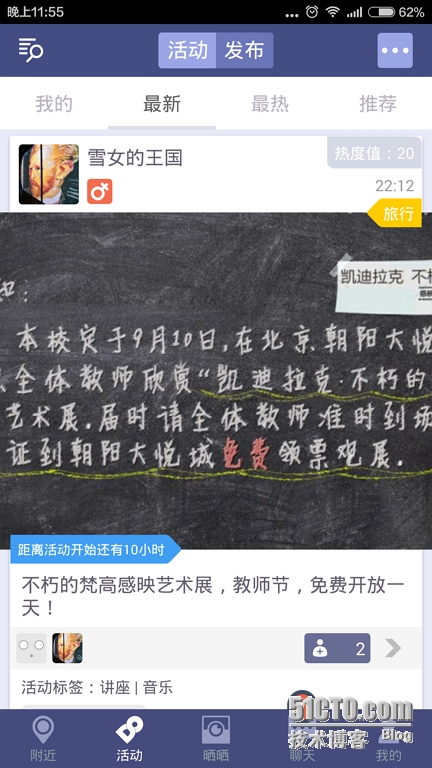 晚上11:55
62%
活动 发布
我的 最新 最热 推荐
雪女的王国
热度值：20
22:12
旅行
凯迪拉克 不朽
知：
本校定于9月10日，在北京朝阳大悦
全体教师欣赏“凯迪拉克·不朽的
艺术展。届时请全体教师准时到场
证到朝阳大悦城免费领票观展.
距离活动开始还有10小时
不朽的梵高感映艺术展，教师节，免费开放一
天！
2
活动标签：讲座 | 音乐
附近 活动 晒晒 聊天 我的
51CTO.com
技术博客 Blog